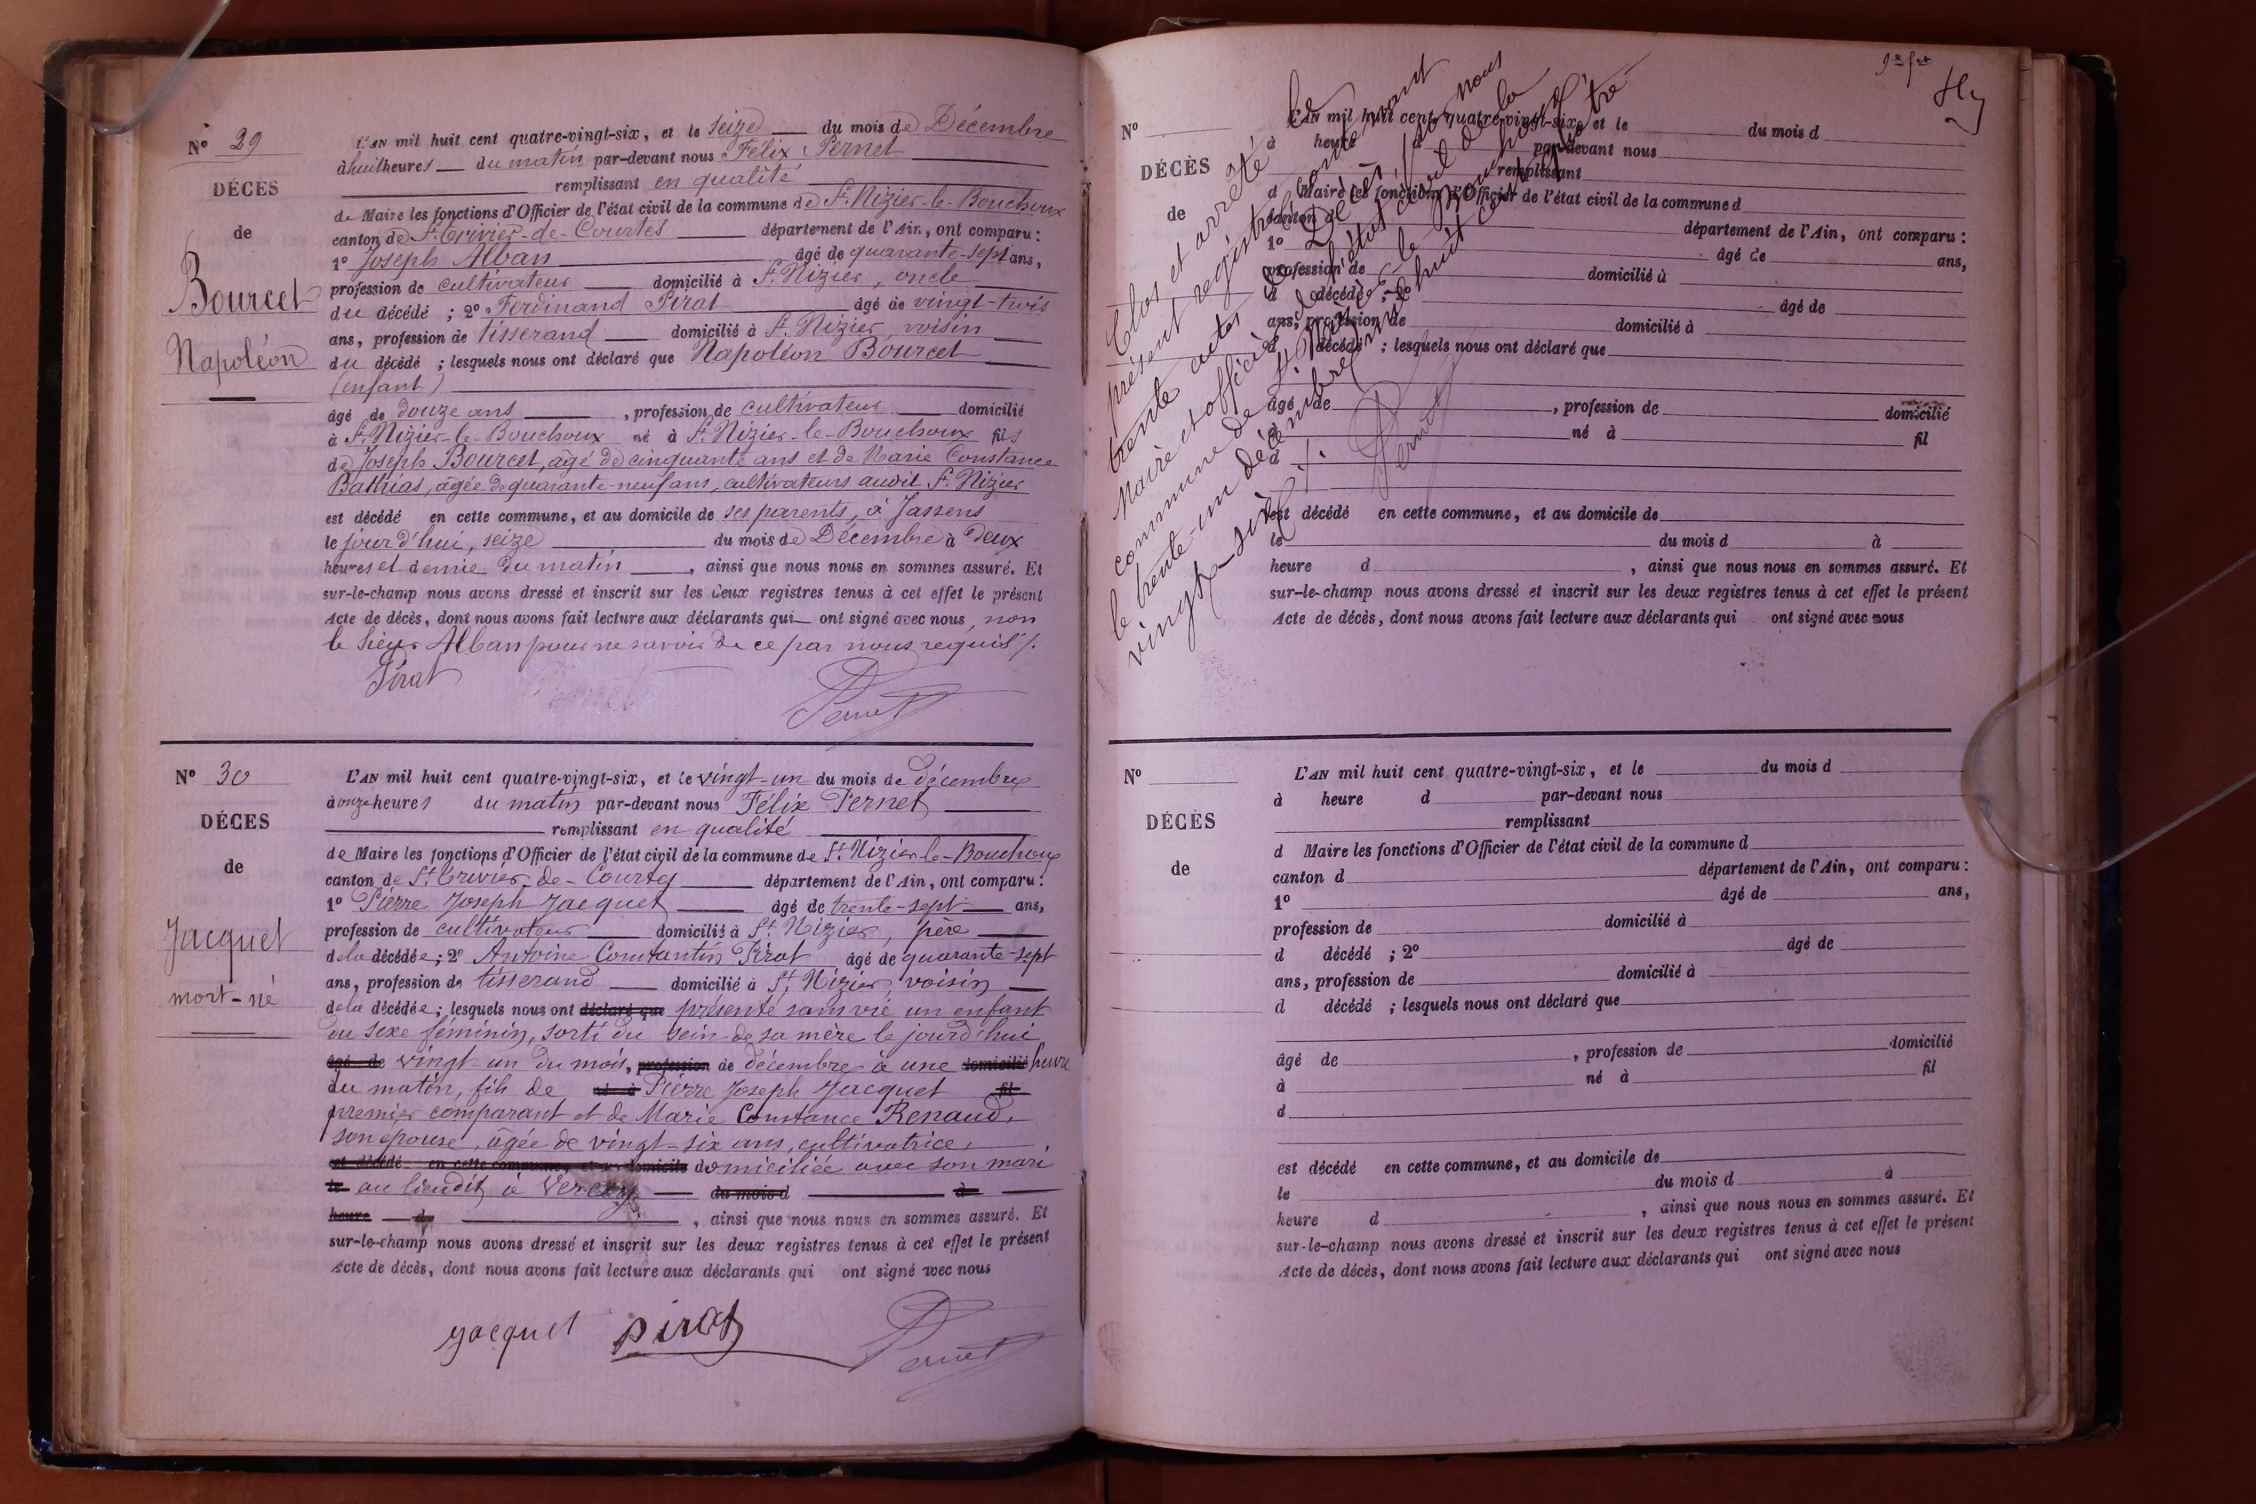 N° 29
DÉCÈS
de
Bourcet
Napoléon
L'AN mil huit cent quatre-vingt-six, et le seize du mois de Décembre
à huit heures du matin par-devant nous Félix Pernet
remplissant en qualité
de Maire les fonctions d'Officier de l'état civil de la commune de St. Nizier-le-Bouchoux
canton de St. Trivier-de-Courtes département de l'Ain, ont comparu :
1° Joseph Alban âgé de quarante-sept ans,
profession de cultivateur domicilié à St. Nizier, oncle
du décédé ; 2° Ferdinand Pirat âgé de vingt-trois
ans, profession de tisserand domicilié à St. Nizier, voisin
du décédé ; lesquels nous ont déclaré que Napoléon Bourcet
(enfant)
âgé de douze ans, profession de cultivateur domicilié
à St. Nizier-le-Bouchoux né à St. Nizier-le-Bouchoux fils
de Joseph Bourcet, âgé de cinquante ans et de Marie Constance
Bathias, âgée de quarante-neuf ans, cultivateurs audit St. Nizier
est décédé en cette commune, et au domicile de ses parents, à Jassens
le jourd'hui, seize du mois de Décembre à deux
heures et demie du matin, ainsi que nous nous en sommes assuré. Et
sur-le-champ nous avons dressé et inscrit sur les deux registres tenus à cet effet le présent
Acte de décès, dont nous avons fait lecture aux déclarants qui ont signé avec nous, non
le sieur Alban pour ne savoir de ce par nous requis ./.
Pirat
Pernet
N° 30
DÉCES
de
Jacquet
mort-né
L'AN mil huit cent quatre-vingt-six, et le vingt-un du mois de décembre
à onze heures du matin par-devant nous Félix Pernet
remplissant en qualité
de Maire les fonctions d'Officier de l'état civil de la commune de St. Nizier-le-Bouchoux
canton de St. Trivier-de-Courtes département de l'Ain, ont comparu :
1° Pierre Joseph Jacquet âgé de trente-sept ans,
profession de cultivateur domicilié à St. Nizier, père
de la décédée ; 2° Antoine Constantin Pirat âgé de quarante-sept
ans, profession de tisserand domicilié à St. Nizier, voisin
de la décédée ; lesquels nous ont déclaré que présenté sans vie un enfant
du sexe féminin, sorti du sein de sa mère le jourd'hui
âgé de vingt-un du mois, profession de décembre à une domicilié heure
du matin, fils de né à Pierre Joseph Jacquet fil
premier comparant et de Marie Constance Renaud,
son épouse, âgée de vingt-six ans, cultivatrice,
est décédé en cette commune, et au domicile domiciliée avec son mari
le au lieudit à du mois d à
heure du, ainsi que nous nous en sommes assuré. Et
sur-le-champ nous avons dressé et inscrit sur les deux registres tenus à cet effet le présent
Acte de décès, dont nous avons fait lecture aux déclarants qui ont signé avec nous
jacquet pirat Pernet
Clos et arrêté le
présent registre contenant
trente actes de Décès, par nous
Maire et officier de l'état civil de la
commune de St. Nizier-le-Bouchoux
le trente-un décembre mil huit cent quatre
vingt-six ./.
Pernet
N°
DÉCÈS
de
L'AN mil huit cent quatre-vingt-six, et le du mois d
à heure d par-devant nous
remplissant
d Maire les fonctions d'Officier de l'état civil de la commune d
canton d département de l'Ain, ont comparu :
1° âgé de ans,
profession de domicilié à
d décédé ; 2° âgé de
ans, profession de domicilié à
d décédé ; lesquels nous ont déclaré que
âgé de, profession de domicilié
à né à fil
d
est décédé en cette commune, et au domicile de
le du mois d à
heure d, ainsi que nous nous en sommes assuré. Et
sur-le-champ nous avons dressé et inscrit sur les deux registres tenus à cet effet le présent
Acte de décès, dont nous avons fait lecture aux déclarants qui ont signé avec nous
N°
DÉCÈS
de
L'AN mil huit cent quatre-vingt-six, et le du mois d
à heure d par-devant nous
remplissant
d Maire les fonctions d'Officier de l'état civil de la commune d
canton d département de l'Ain, ont comparu :
1° âgé de ans,
profession de domicilié à
d décédé ; 2° âgé de
ans, profession de domicilié à
d décédé ; lesquels nous ont déclaré que
âgé de, profession de domicilié
à né à fil
d
est décédé en cette commune, et au domicile de
le du mois d à
heure d, ainsi que nous nous en sommes assuré. Et
sur-le-champ nous avons dressé et inscrit sur les deux registres tenus à cet effet le présent
Acte de décès, dont nous avons fait lecture aux déclarants qui ont signé avec nous